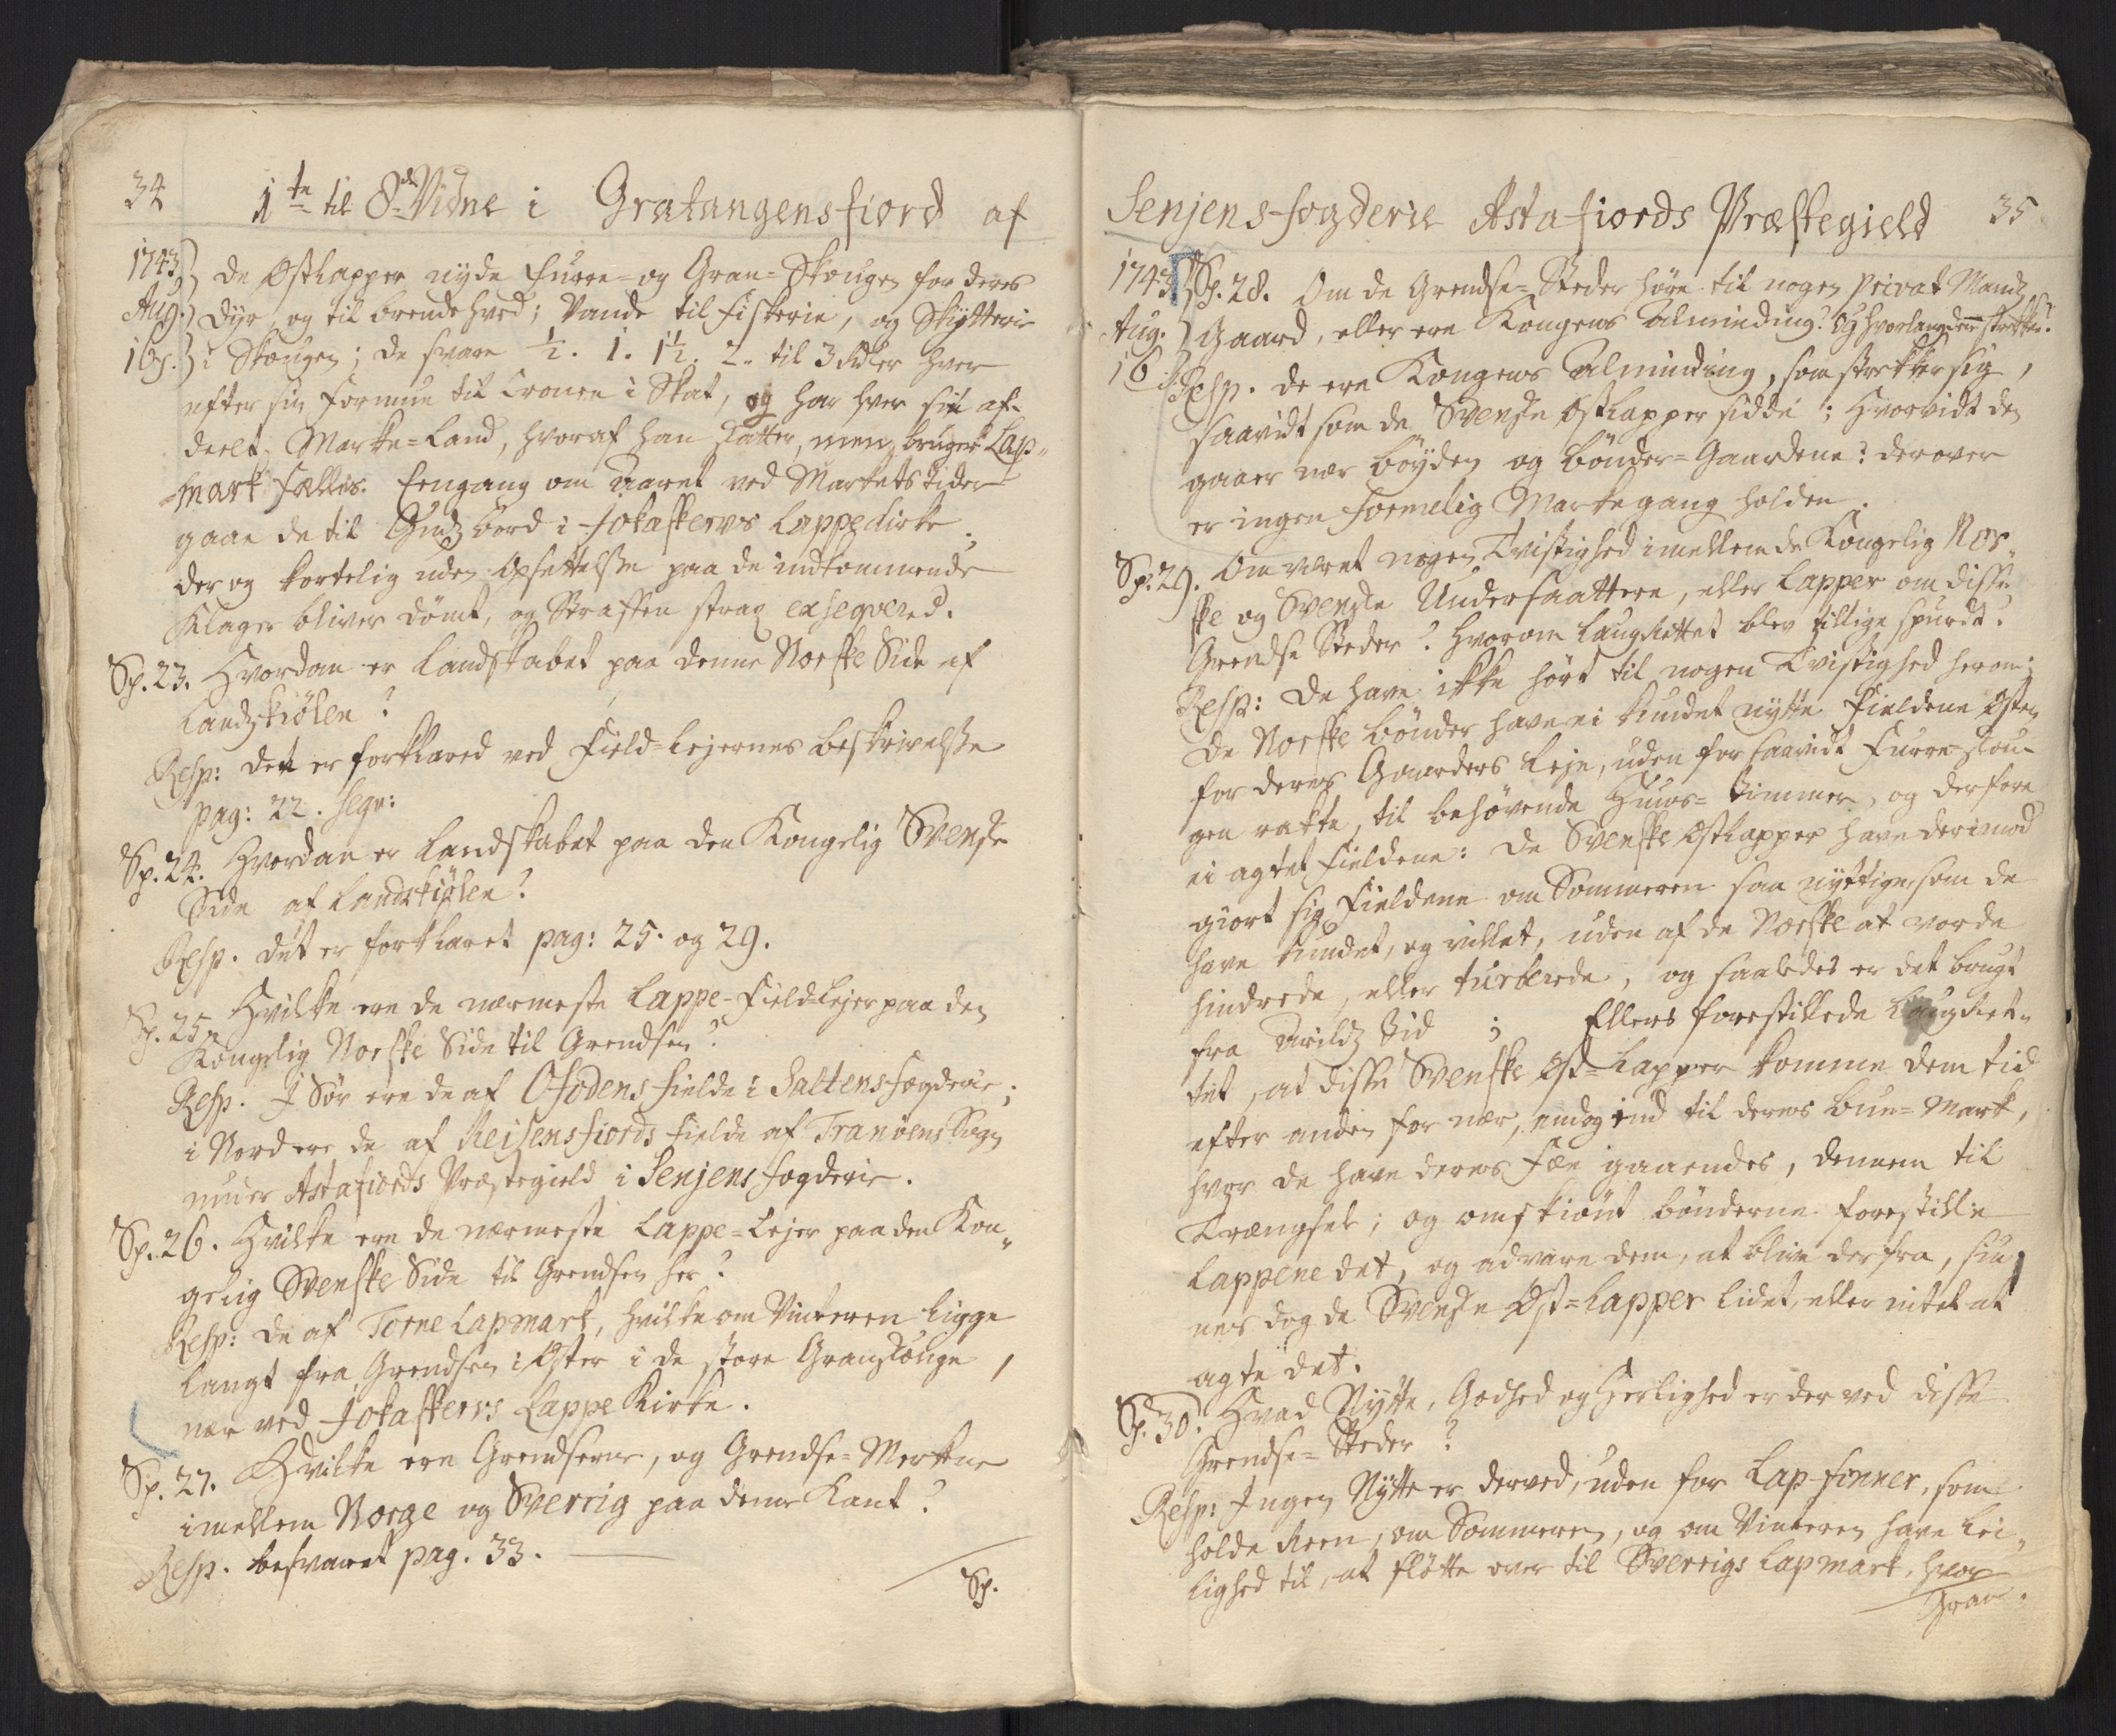 34
1te til 8de Vidne i Gratangensfiord af
1743 de Østlapper nyde Furre- og Gran-Skougen for deres
Aug. Dyr og til brendehved; Vande til Fiskerie, og Skÿtterie
16. i Skougen; de svare ½. 1. 1½. 2. til 3 Rdler hver
efter sin Formue til Cronen i Skat, og har hver sit af-
deelt Marke-Land, hvoraf han skatter, men bruger Lap-
mark fælles. Eengang om Aaret ved Markets tider
gaae de til Gudz bord i Jokaskervs Lappe Kirke;
der og kortelig uden Opsettelse paa de indkommende
Klager bliver dømt, og Straffen strax exseqvered.
Sp. 23. Hvordan er Landskabet paa denne Norske Side af
Landzkiølen?
Resp: det er forklared ved Field-Lejernes beskrivelse
pag: 22. seqv:
Sp. 24. Hvordan er Landskabet paa den Kongelig Svenske
Side af Landzkiølen?
Resp. det er forklaret pag: 25. og 29.
Sp. 25. Hvilke ere de nærmeste Lappe-Field-Lejer paa den
Kongelig Norske Side til Grendsen?
Resp. I Sør ere de af Ofodens Fielde i Saltens Fogderie;
i Nord ere de af Reisensfiords Fielde af Tranøens Sogn
Astafiords Præstegield i Senjens Fogderie.
Sp. 26. Hvilke ere de nærmeste Lappe-Lejer paa den Kon-
gelig Svenske Side til Grendsen her?
Resp: de af Torne Lapmark, hvilke om Vinteren ligge
langt fra Grendsen i Øster i de store Granskouge,
nær ved Jokaskervs Lappe Kirke.
Sp. 27. Hvilke ere Grendserne, og Grendse-Merkene
imellem Norge og Sverrig paa denne Kant?
Resp. besvaret pag. 33.
Sp.
Senjens-fogderie Astafiords Præstegield 35
1743 Sp. 28. Om de Grendse-Steder høre til nogen privat Mandz
Aug. Gaard, eller ere Kongens Alminding? Og hvorlangt den strekker?
16. Resp. de ere Kongens Alminding, som strekker sig,
saavidt som de Svenske Østlapper sidde; Hvorvidt den
gaaer nær Bøyden og bønder-Gaardene: derover
er ingen formelig Markegang holden.
Sp. 29. Om været nogen Tvistighed imellem de Kongelig Nor-
ske og Svenske Undersaattere, eller Lapper om disse
Grendse Steder? Hvorom Laugrettet blev tillige spurdt?
Resp: de have ikke hørt til nogen Tvistighed herom;
de Norske bønder have ei kundet nytte Fieldene Østen
for deres Gaarders Leje, uden for saavidt Furre-skou-
gen rakte, til behøvende Huus-Timmer, og derfore
ei agtet Fieldene: de Svenske Østlapper have derimod
giort sig Fieldene om Sommeren saa nyttige, som de
have kundet, og villet, uden af de Norske at vorde
hindrede, eller turberede, og saaledes er det brugt
fra Arildz Tid; Ellers forestillede Laugret-
tet, at disse Svenske Øst-Lapper komme dem tid
efter anden for nær, endog ind til deres bue-Mark,
hvor de have deres Fæe gaaendes, dennem til
Trængsel; og omskiønt bønderne forestille
Lappene det, og advare dem, at blive derfra, siu-
nes dog de Svenske Øst-Lapper lidet, eller intet at
agte det.
Sp. 30. Hvad Nytte, Godhed og Herlighed er der ved disse
Grendse-Steder?
Resp: Ingen Nytte er derved, uden for Lap-finner, som
holde Reen, om Sommeren, og om Vinteren have Lei-
lighed til, at fløtte over til Sverrigs Lapmark, hvor
Gran.